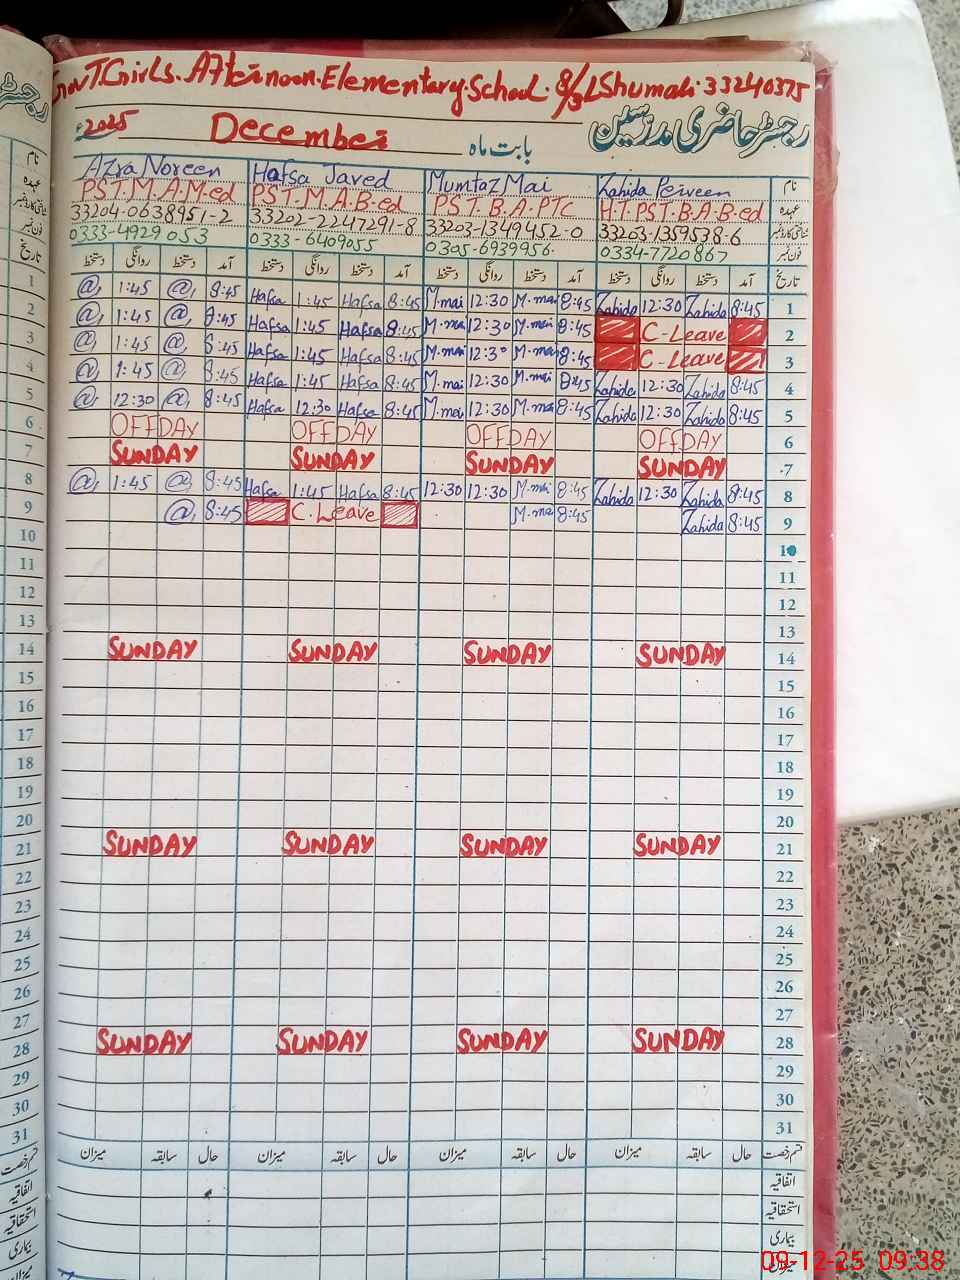 Gov T. Girls. Afternoon. Elementary. School. 8/3L Shumali. 33240375
رجسٹر حاضری مدرسین
بابت ماہ December 2025
نام Zahida Perveen Mumtaz Mai Hafsa Javed Azra Noreen
عہدہ H.T. PST. B.A. B.ed PST. B.A. PTC PST. M.A. B.ed PST. M.A. M.ed
شناختی کارڈ نمبر 33203-1359538-6 33203-1349452-0 33202-2247291-8 33204-0638951-2
فون نمبر 0334-7720867 0305-6939956 0333-6409055 0333-4929053
تاریخ آمد دستخط روانگی دستخط آمد دستخط روانگی دستخط آمد دستخط روانگی دستخط آمد دستخط روانگی دستخط
1 8:45 Zahida 12:30 Zahida 8:45 M.mai 12:30 M.mai 8:45 Hafsa 1:45 Hafsa 8:45 @, 1:45 @,
2 C-Leave 8:45 M.mai 12:30 M.mai 8:45 Hafsa 1:45 Hafsa 8:45 @, 1:45 @,
3 C-Leave 8:45 M.mai 12:30 M.mai 8:45 Hafsa 1:45 Hafsa 8:45 @, 1:45 @,
4 8:45 Zahida 12:30 Zahida 8:45 M.mai 12:30 M.mai 8:45 Hafsa 1:45 Hafsa 8:45 @, 1:45 @,
5 8:45 Zahida 12:30 Zahida 8:45 M.mai 12:30 M.mai 8:45 Hafsa 12:30 Hafsa 8:45 @, 12:30 @,
6 OFFDAY OFFDAY OFFDAY OFFDAY
7 SUNDAY SUNDAY SUNDAY SUNDAY
8 8:45 Zahida 12:30 Zahida 8:45 M.mai 12:30 12:30 8:45 Hafsa 1:45 Hafsa 8:45 @, 1:45 @,
9 8:45 Zahida 8:45 M.mai C.Leave 8:45 @,
10
11
12
13
14 SUNDAY SUNDAY SUNDAY SUNDAY
15
16
17
18
19
20
21 SUNDAY SUNDAY SUNDAY SUNDAY
22
23
24
25
26
27
28 SUNDAY SUNDAY SUNDAY SUNDAY
29
30
31
قسم رخصت حال سابقہ میزان حال سابقہ میزان حال سابقہ میزان حال سابقہ میزان
اتفاقیہ
استحقاقیہ
بیماری
میزان
09-12-25 09:38